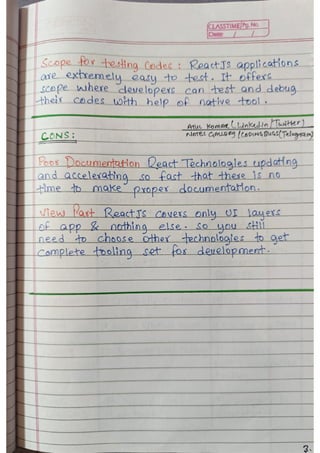 CLASSTIME Pg. No.
Date / /
Scope for testing codes : ReactJs applications
are extremely easy to test. It offers
scope where developers can test and debug
their codes with help of native tool.
Atul Kumar (LinkedIn/Twitter)
Notes Gallery (Telegram)
CONS :
Poor Documentation React Technologies updating
and accelerating so fast that there is no
time to make proper documentation.
View Part ReactJs covers only UI layers
of app & nothing else. so you still
need to choose other technologies to get
complete tooling set for development.
3.